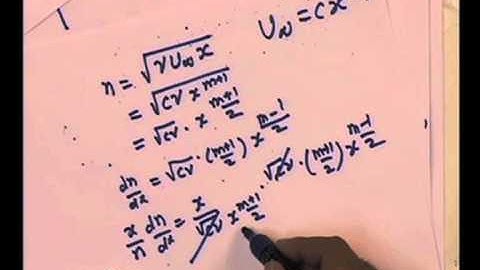 U∞ = cx
n = √(νU∞x)
= √(cν x^(m+1))
= √(cν) · x^((m+1)/2)
dn/dx = √(cν) · ((m+1)/2) x^((m-1)/2)
x/n dn/dx = x/(√(cν) x^((m+1)/2)) · √(cν) · ((m+1)/2) x^((m-1)/2)